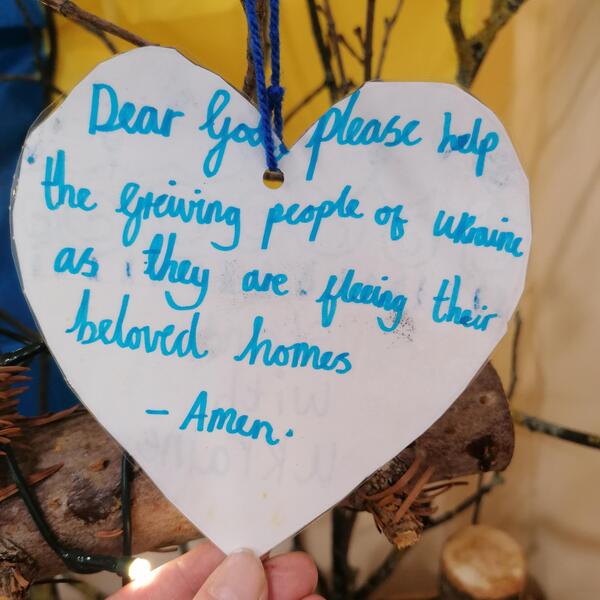 Dear God please help
the greiving people of ukraine
as they are fleeing their
beloved homes
- Amen.